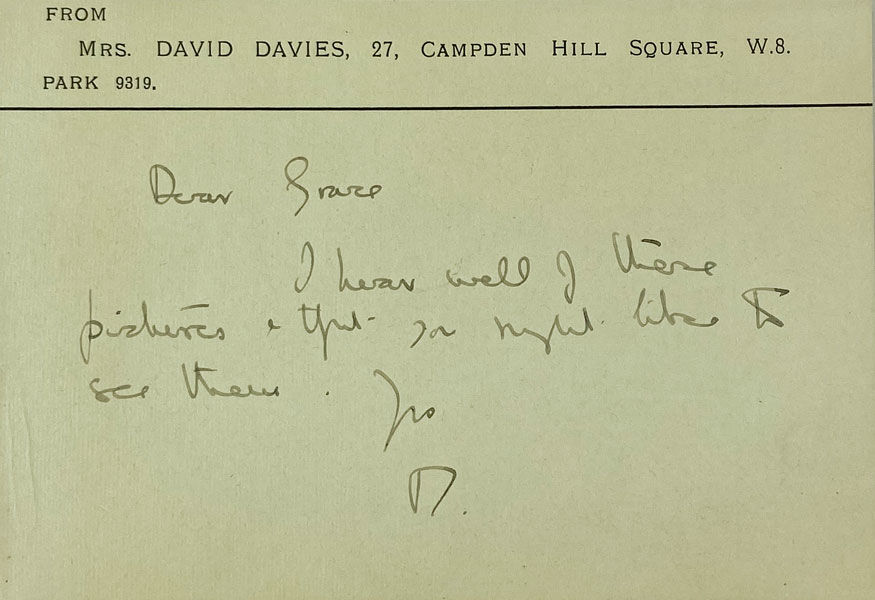 FROM
MRS. DAVID DAVIES, 27, CAMPDEN HILL SQUARE, W.8.
PARK 9319.
Dear Grace
I hear well of these
pictures & tht you might like to
see them. Yrs
D.